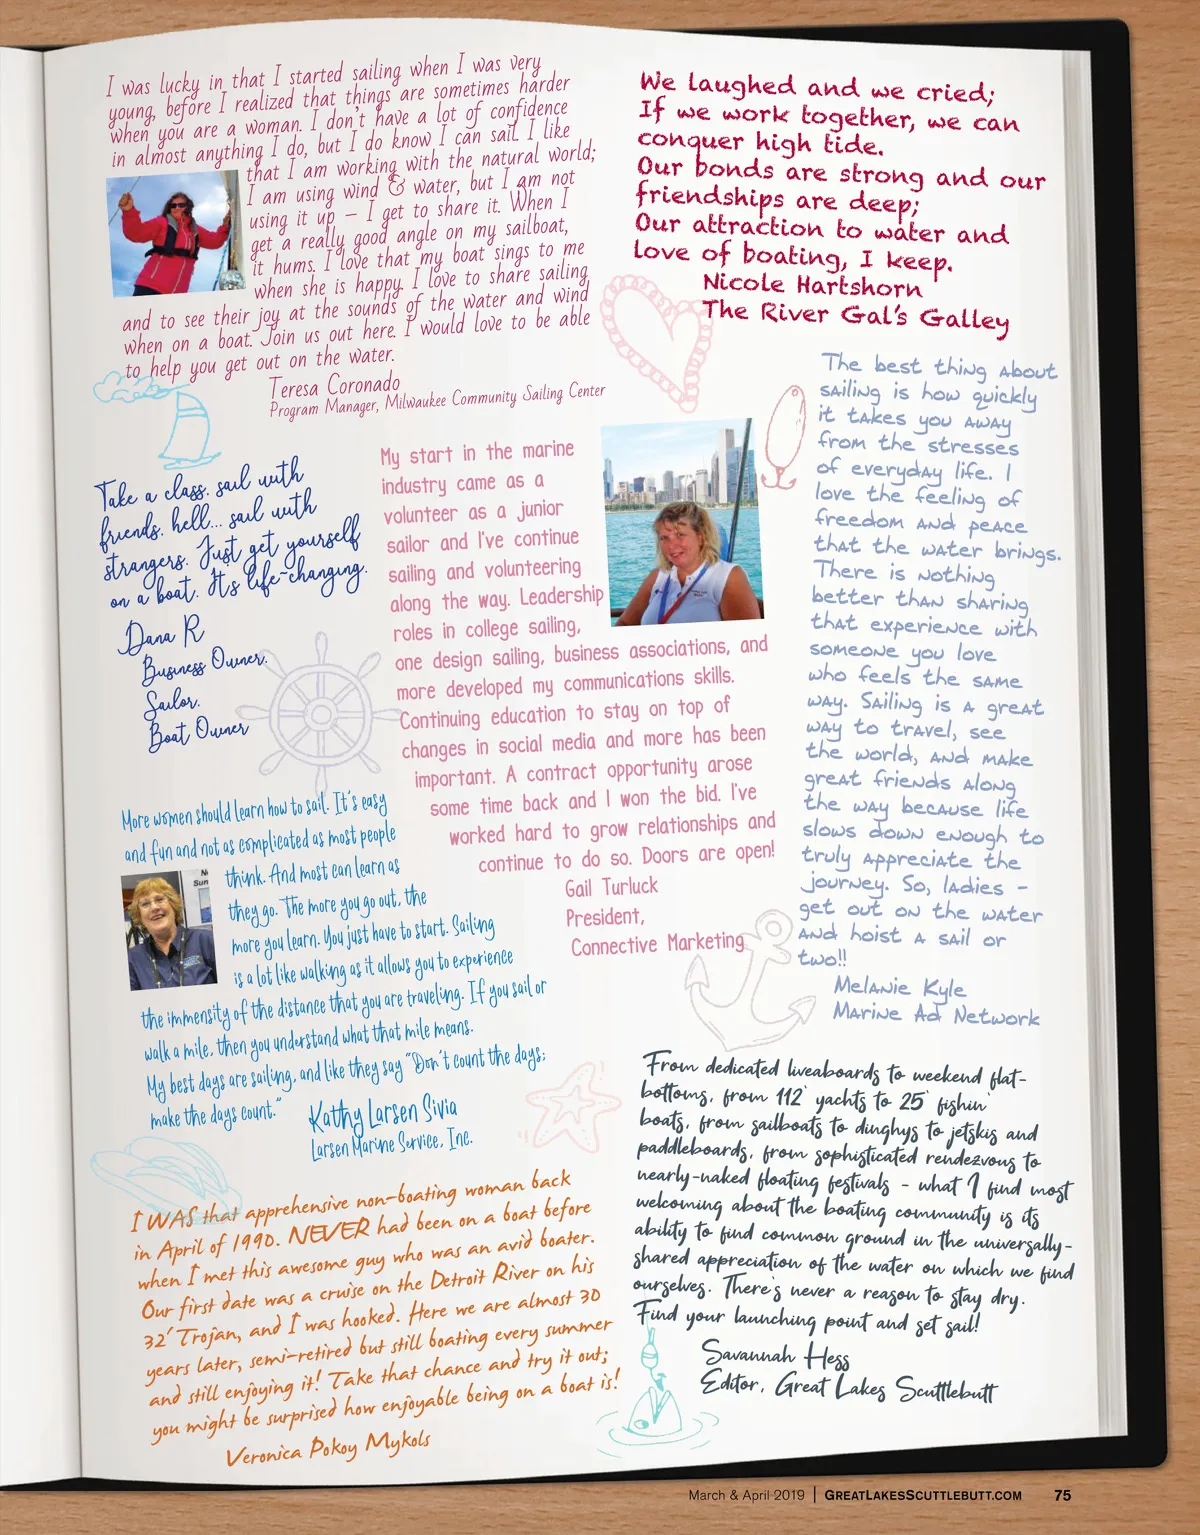 I was lucky in that I started sailing when I was very
young, before I realized that things are sometimes harder
when you are a woman. I don't have a lot of confidence
in almost anything I do, but I do know I can sail. I like
that I am working with the natural world;
I am using wind & water, but I am not
using it up – I get to share it. When I
get a really good angle on my sailboat,
it hums. I love that my boat sings to me
when she is happy. I love to share sailing
and to see their joy at the sounds of the water and wind
when on a boat. Join us out here. I would love to be able
to help you get out on the water.
Teresa Coronado
Program Manager, Milwaukee Community Sailing Center
We laughed and we cried;
If we work together, we can
conquer high tide.
Our bonds are strong and our
friendships are deep;
Our attraction to water and
love of boating, I keep.
Nicole Hartshorn
The River Gal's Galley
Take a class, sail with
friends, hell... sail with
strangers. Just get yourself
on a boat. It's life-changing.
Dana R
Business Owner,
Sailor,
Boat Owner
My start in the marine
industry came as a
volunteer as a junior
sailor and I've continue
sailing and volunteering
along the way. Leadership
roles in college sailing,
one design sailing, business associations, and
more developed my communications skills.
Continuing education to stay on top of
changes in social media and more has been
important. A contract opportunity arose
some time back and I won the bid. I've
worked hard to grow relationships and
continue to do so. Doors are open!
Gail Turluck
President,
Connective Marketing
The best thing about
sailing is how quickly
it takes you away
from the stresses
of everyday life. I
love the feeling of
freedom and peace
that the water brings.
There is nothing
better than sharing
that experience with
someone you love
who feels the same
way. Sailing is a great
way to travel, see
the world, and make
great friends along
the way because life
slows down enough to
truly appreciate the
journey. So, ladies –
get out on the water
and hoist a sail or
two!!
Melanie Kyle
Marine Ad Network
More women should learn how to sail. It's easy
and fun and not as complicated as most people
think. And most can learn as
they go. The more you go out, the
more you learn. You just have to start. Sailing
is a lot like walking as it allows you to experience
the immensity of the distance that you are traveling. If you sail or
walk a mile, then you understand what that mile means.
My best days are sailing, and like they say "Don't count the days;
make the days count."
Kathy Larsen Sivia
Larsen Marine Service, Inc.
I WAS that apprehensive non-boating woman back
in April of 1990. NEVER had been on a boat before
when I met this awesome guy who was an avid boater.
Our first date was a cruise on the Detroit River on his
32' Trojan, and I was hooked. Here we are almost 30
years later, semi-retired but still boating every summer
and still enjoying it! Take that chance and try it out;
you might be surprised how enjoyable being on a boat is!
Veronica Pokoy Mykols
From dedicated liveaboards to weekend flat-
bottoms, from 112' yachts to 25' fishin'
boats, from sailboats to dinghys to jetskis and
paddleboards, from sophisticated rendezvous to
nearly-naked floating festivals - what I find most
welcoming about the boating community is its
ability to find common ground in the universally-
shared appreciation of the water on which we find
ourselves. There's never a reason to stay dry.
Find your launching point and set sail!
Savannah Hess
Editor, Great Lakes Scuttlebutt
March & April 2019 | GREATLAKESSCUTTLEBUTT.COM 75